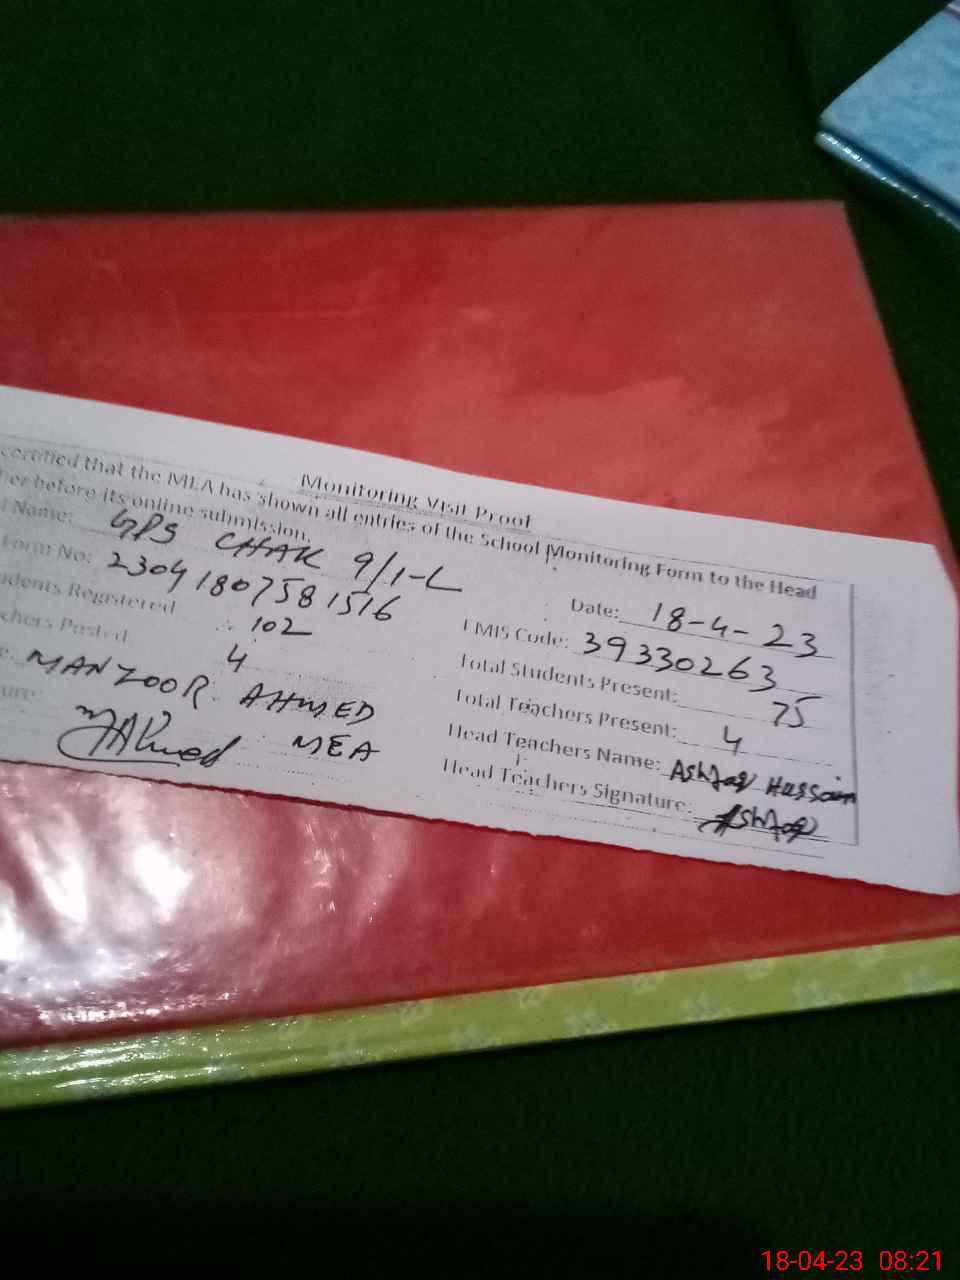 Monitoring Visit Proof
certified that the MEA has shown all entries of the School Monitoring Form to the Head
her before its online submission.
Name: GPS CHAK 9/1-L
Date: 18-4-23
Form No: 23041807581516
EMIS Code: 39330263
udents Registered 102
Total Students Present: 75
chers Posted 4
Total Teachers Present: 4
MANZOOR AHMED
Head Teachers Name: Ashfaq Hussain
ure: Ahmed MEA
Head Teachers Signature: Ashfaq
18-04-23 08:21